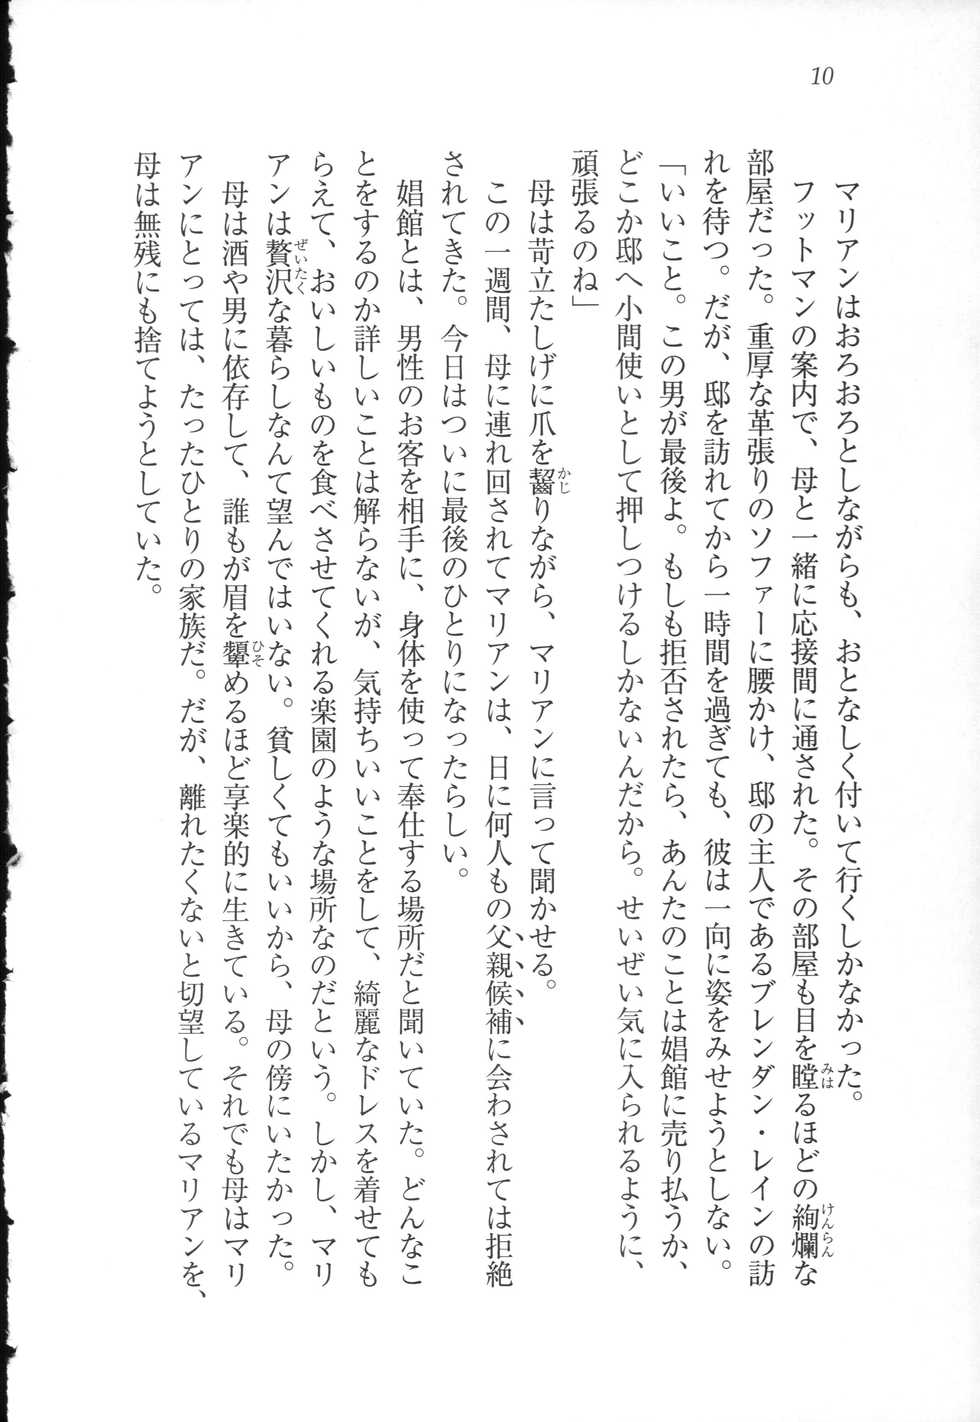 10
マリアンはおろおろとしながらも、おとなしく付いて行くしかなかった。
フットマンの案内で、母と一緒に応接間に通された。その部屋も目を瞠るほどの絢爛な
部屋だった。重厚な革張りのソファーに腰かけ、邸の主人であるブレンダン・レインの訪
れを待つ。だが、邸を訪れてから一時間を過ぎても、彼は一向に姿をみせようとしない。
「いいこと。この男が最後よ。もしも拒否されたら、あんたのことは娼館に売り払うか、
どこか邸へ小間使いとして押しつけるしかないんだから。せいぜい気に入られるように、
頑張るのね」
母は苛立たしげに爪を齧りながら、マリアンに言って聞かせる。
この一週間、母に連れ回されてマリアンは、日に何人もの父親候補に会わされては拒絶
されてきた。今日はついに最後のひとりになったらしい。
娼館とは、男性のお客を相手に、身体を使って奉仕する場所だと聞いていた。どんなこ
とをするのか詳しいことは解らないが、気持ちいいことをして、綺麗なドレスを着せても
らえて、おいしいものを食べさせてくれる楽園のような場所なのだという。しかし、マリ
アンは贅沢な暮らしなんて望んではいない。貧しくてもいいから、母の傍にいたかった。
母は酒や男に依存して、誰もが眉を顰めるほど享楽的に生きている。それでも母はマリ
アンにとっては、たったひとりの家族だ。だが、離れたくないと切望しているマリアンを、
母は無残にも捨てようとしていた。